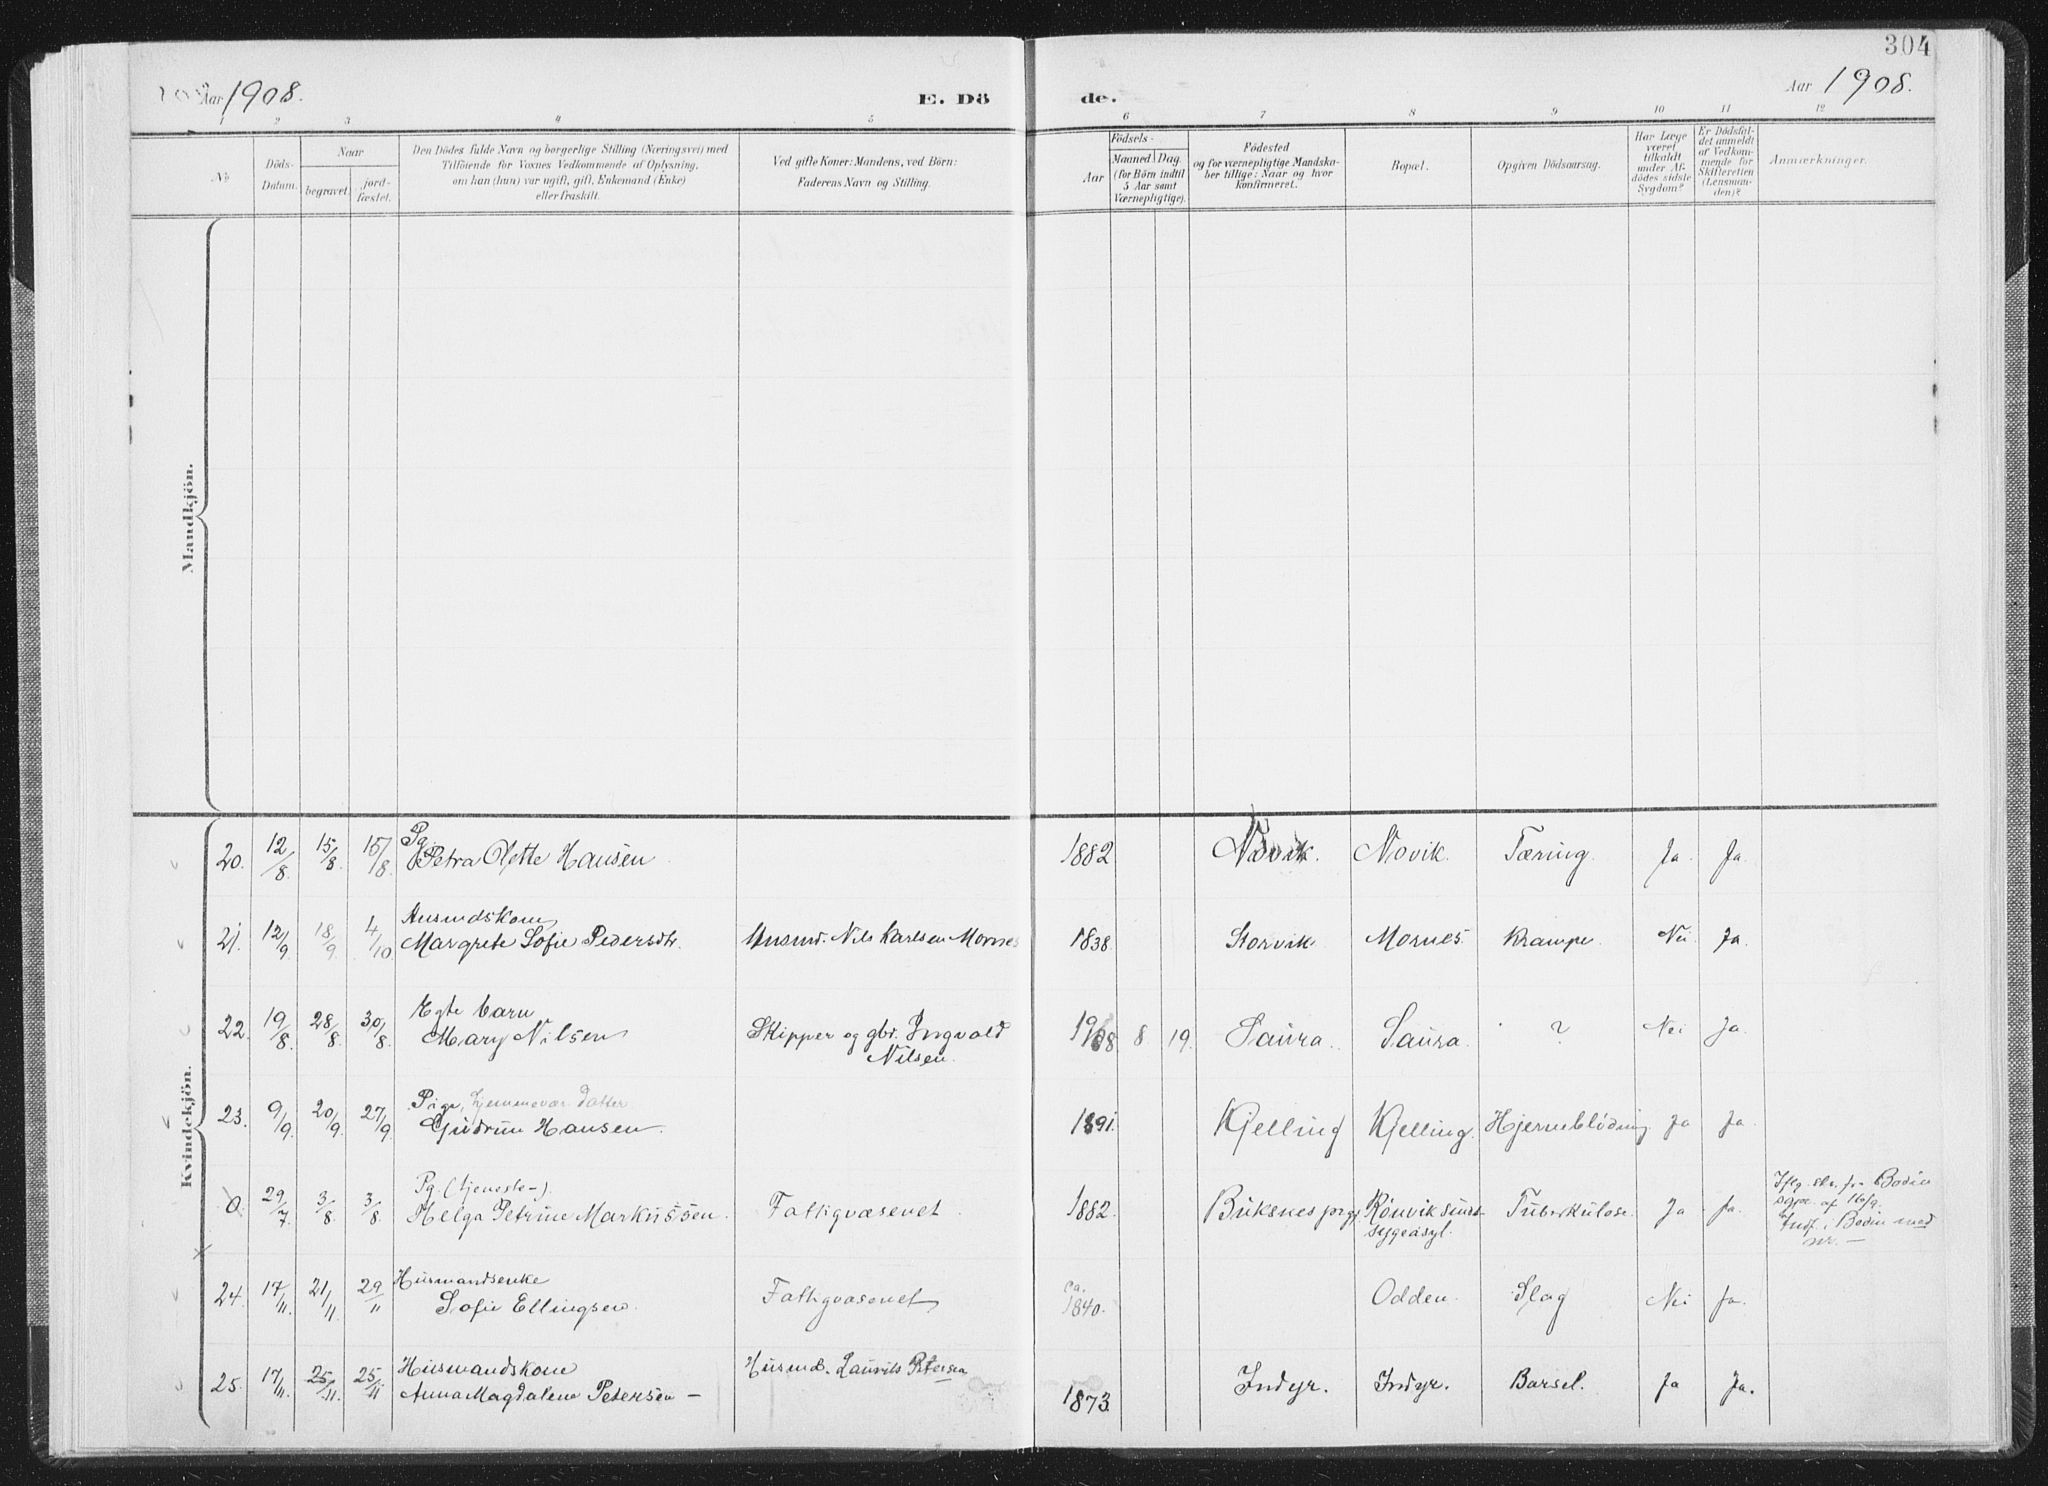 304
Aar 1908.
E. Dö
de.
Aar 1908.
1 2 3 4 5 6 7 8 9 10 11 12
No
Döds-Datum.
Naar
begravet.
jord-fæstet.
Den Dödes fulde Navn og borgerlige Stilling (Næringsvei) med
Tilföiende for Voxnes Vedkommende af Oplysning,
om han (hun) var ugift, gift, Enkemand (Enke)
eller fraskilt.
Ved gifte Koner: Mandens, ved Börn:
Faderens Navn og Stilling.
Födsels-
Aar
Maaned Dag
(for Börn indtil
5 Aar samt
Værnepligtige).
Födested
og for værnepligtige Mandska-
ber tillige: Naar og hvor
konfirmeret.
Bopæl.
Opgiven Dödsaarsag.
Har Læge
været
tilkaldt
under Af-
dödes sidste
Sygdom?
Er Dödsfal-
det anmeldt
af Vedkom-
mende for
Skifteretten
(Lensman-
den)?
Anmærkninger.
Mandkjön.
Kvindekjön.
Pg.
20. 12/8. 15/8. 15/8. Petra Olette Hansen 1882 Novik. Novik. Tæring. Ja. Ja.
21. 12/9 18/9. 4/10 Margrete Sofie Pedersdtr. Husmd. Nils Karlsen Mornes 1838 Storvik. Mornes Krampe. Nei Ja.
Egte barn
22. 19/8. 28/8. 30/8. Mary Nilsen Skipper og gbr. Ingvald
Nilsen. 1908 8 19. Saura. Saura. ? Nei Ja.
Pige, hjemmevær. datter
23. 9/9. 20/9. 27/9. Gudrun Hansen. 1891. Kjelling Kjelling. Hjerneblödning. Ja Ja.
Pg. (tjeneste-).
0. 29/7. 3/8. 3/8. Helga Petrine Markussen. Fattigvæsenet. 1882. Buksnes prgj. Rönvik sinds-
sygeasyl. Tuberkulose. Ja Ja. Iflg. skr. fra Bodin
sgpr. af 16/9.
Indf. i Bodin med
nr. —
Husmandsenke
24. 17/11. 21/11. 29/11 Sofie Ellingsen. Fattigvæsenet ca.
1840. Odden. Slag Nei Ja.
Husmandskone
25. 17/11. 25/11. 25/11 Anna Magdalene Petersen — Husmd. Laurits Petersen 1873. Indyr. Indyr. Barsel. Ja Ja.